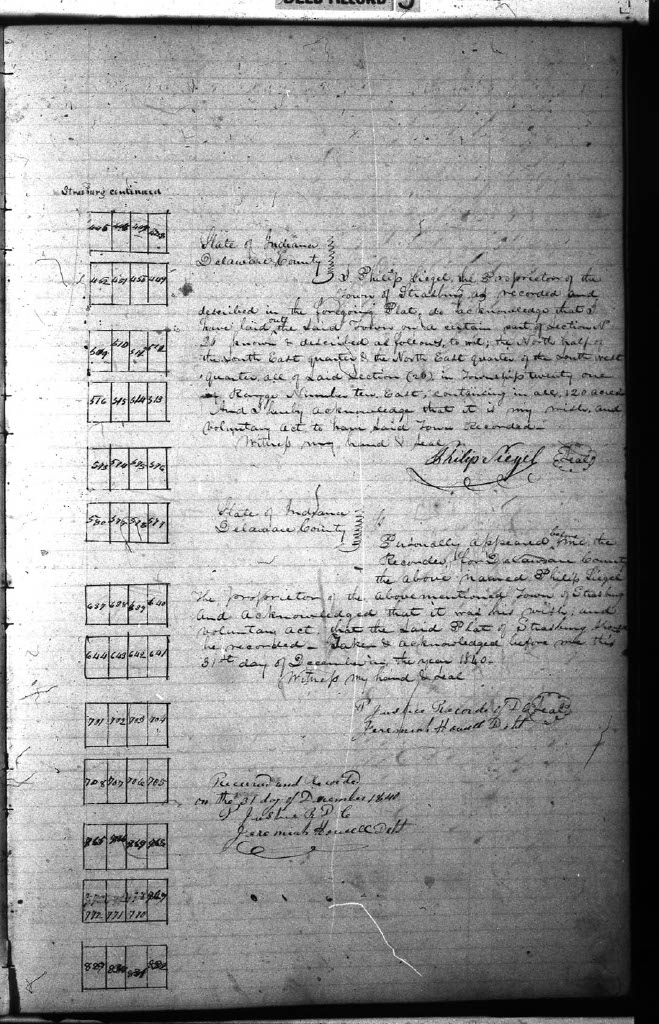 DEED RECORD 5
Strasburg continued
445 446 447 448
452 451 450 449
509 510 511 512
516 515 514 513
573 574 575 576
580 579 578 577
637 638 639 640
644 643 642 641
701 702 703 704
708 707 706 705
865 866 867 868
869
772 771 770
State of Indiana
Delaware County
I Philip Siegel, the Proprietor of the
Town of Strasburg as recorded and
described in the foregoing Plat, do acknowledge that I
have laid out the Said Town on a certain part of Section No
known & described as follows, to wit; the North half of
the South East quarter & the North East quarter of the South west
quarter, all of Said Section (26) in Township twenty one
of Range Number ten East, containing in all, 120 acres
And I hereby acknowledge that it is my wish, and
voluntary act to have Said Town Recorded.
Witness my hand & Seal
Philip Siegel Seal
State of Indiana
Delaware County
Personally appeared before me, the
Recorder, for Delaware County
the above named Philip Siegel
The proprietor of the above mentioned Town of Strasburg
And acknowledged that it was his wish, and
voluntary act that the Said Plat of Strasburg should
be recorded - Taken & acknowledged before me this
31st day of December in the year 1840.
Witness my hand & Seal
Justice Recorder of D C Seal
Jeremiah Howell Dept
Received and Recorded
on the 31 day of December 1840
Justice R D C
Jeremiah Howell Dept